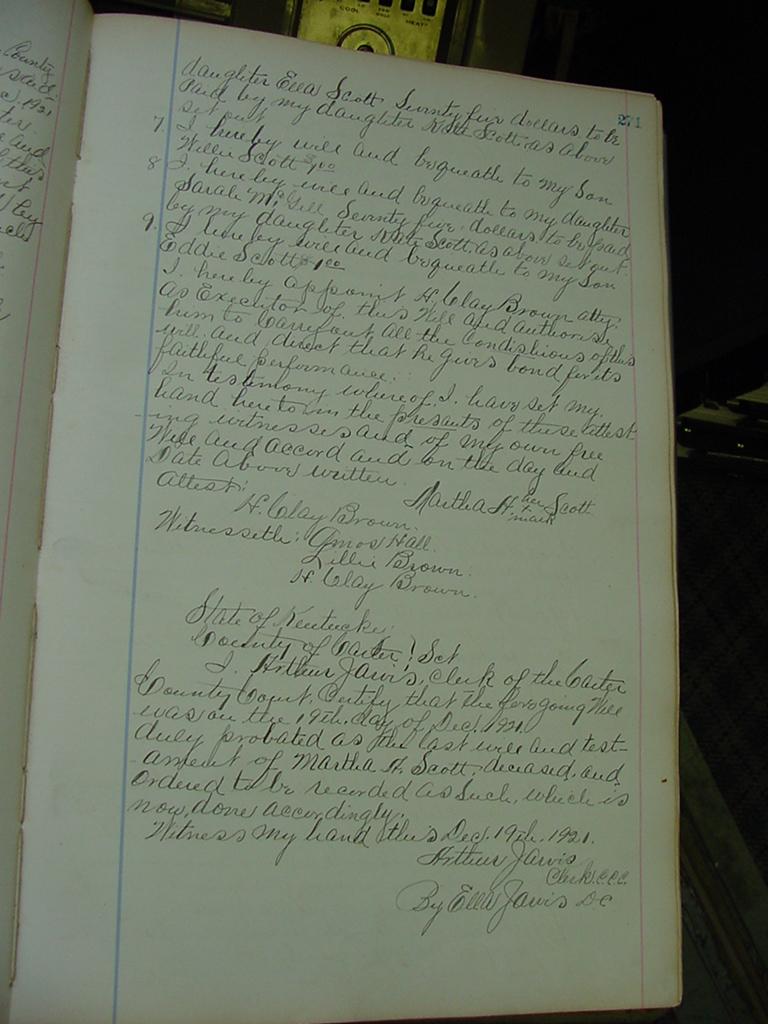 COOL
HEAT
County
271
daughter Ella Scott Seventy five dollars to be
Paid by my daughter Kate Scott, as above
set out
7. I hereby will and bequeath to my Son
Willie Scott $1.00
8 I hereby will and bequeath to my daughter
Sarah McGill Seventy five dollars to be paid
by my daughter Kate Scott, as above set out.
9. I hereby will and bequeath to my Son
Eddie Scott $1.00
I hereby appoint H. Clay Brown atty.
as Executor of this Will and authorise
him to Carry out all the Conditions of this
will. and direct that he gives bond for its
faithful performance.
In testimony whereof, I have set my
hand hereto in the presants of these attest-
-ing witnesses and of my own free
Will and accord and on the day and
Date above written.
Martha H. her x mark Scott
Attest:
H. Clay Brown.
Witnesseth: Amos Hall.
Lillie Brown.
H. Clay Brown.
State of Kentucky:
County of Carter! Sct
I. Arthur Jarvis, Clerk of the Carter
County Court, Certify that the foregoing Will
was on the 19th. day of Dec. 1921.
duly probated as the last will and test-
-ament of Martha H. Scott, deceased, and
Ordered to be recorded as such, which is
now, done accordingly.
Witness my hand this Dec. 19th. 1921.
Arthur Jarvis
Clerk C.C.C.
By Ella Jarvis DC